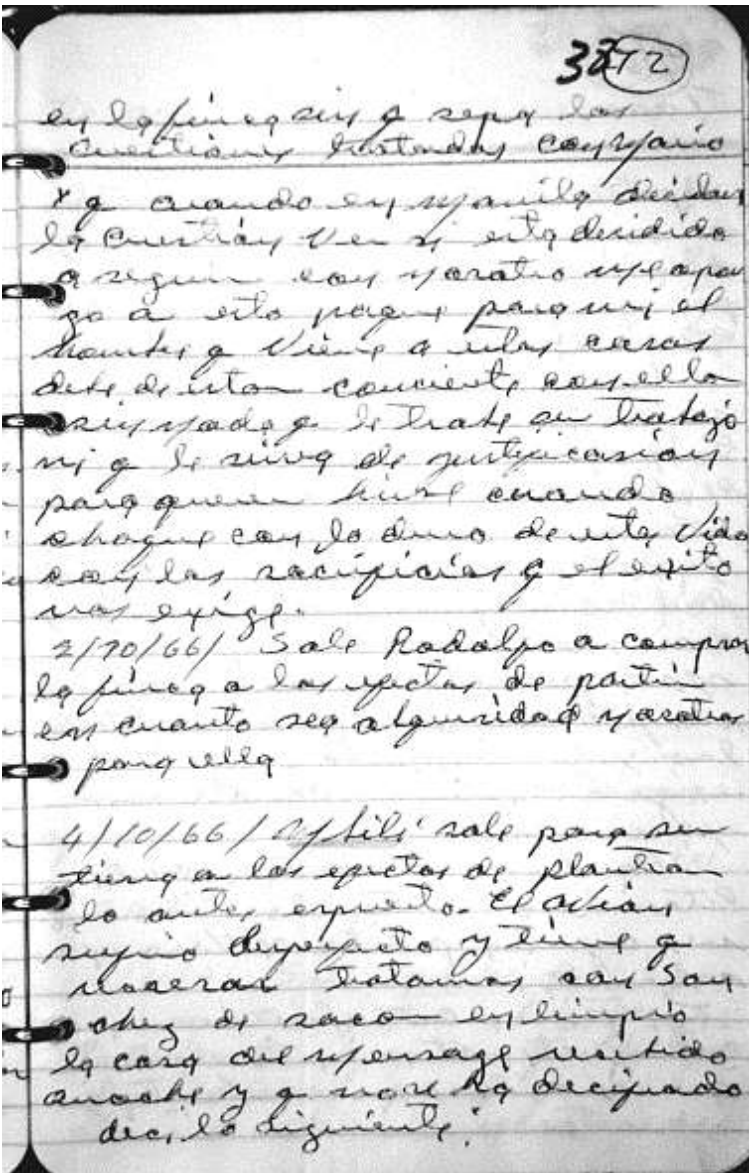 38 72
en la finca sin q sepa las
cuestiones tratadas con Mario
y q cuando en Manila decidan
la cuestión ver si esta decidido
a seguir con nosotros me opon
go a esto porque para mi el
hombre q viene a estas cosas
debe de estar conciente con ello
sin nada q le trate su trabajo
ni q le sirva de justificasión
para querer huise cuando
choque con lo duro de esta vida
con los sacrificios q el exito
nos exige.
2/10/66/ Sale Rodolfo a comprar
la finca a los efectos de partir
en cuanto sea alquiridad nosotros
para ella
4/10/66/ sale para su
tierra a los efectos de plantiar
lo antes expuesto. El avion
sufrio desperfecto y tiene q
tratamos con San
chez de sacar en limpio
la cosa del mensage recibido
anoche y q no se ha decifrado
deci, lo siguiente: